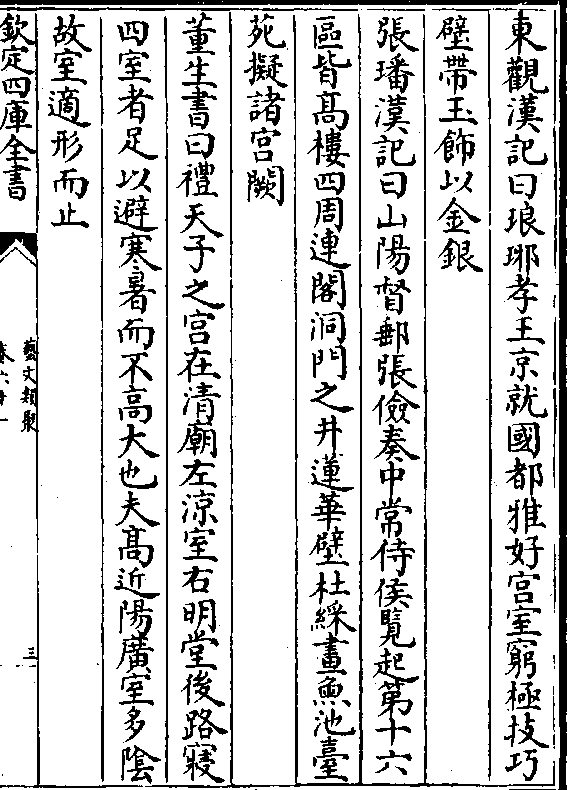 東觀漢記曰琅邪孝王京就國都雅好宫室窮極技巧
壁帶玉飾以金銀
張璠漢記曰山陽督郵張儉奏中常侍侯覽起第十六
區皆髙樓四周連閣洞門之井蓮華壁杜綵畫魚池臺
苑擬諸宫闕
董生書曰禮天子之宫在清廟左涼室右明堂後路寢
四室者足以避寒暑而不高大也夫髙近陽廣室多陰
故室適形而止
欽定四庫全書
藝文類聚
卷六十一
三